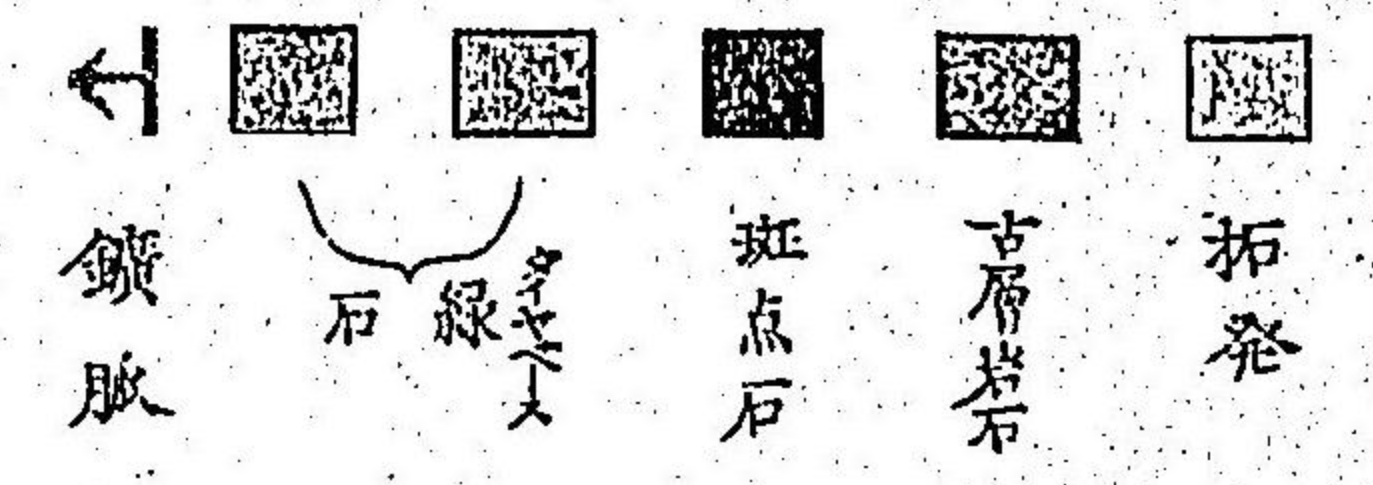 拓発
古層岩石
斑点石
ダイヤベース
緑石
鑛脈